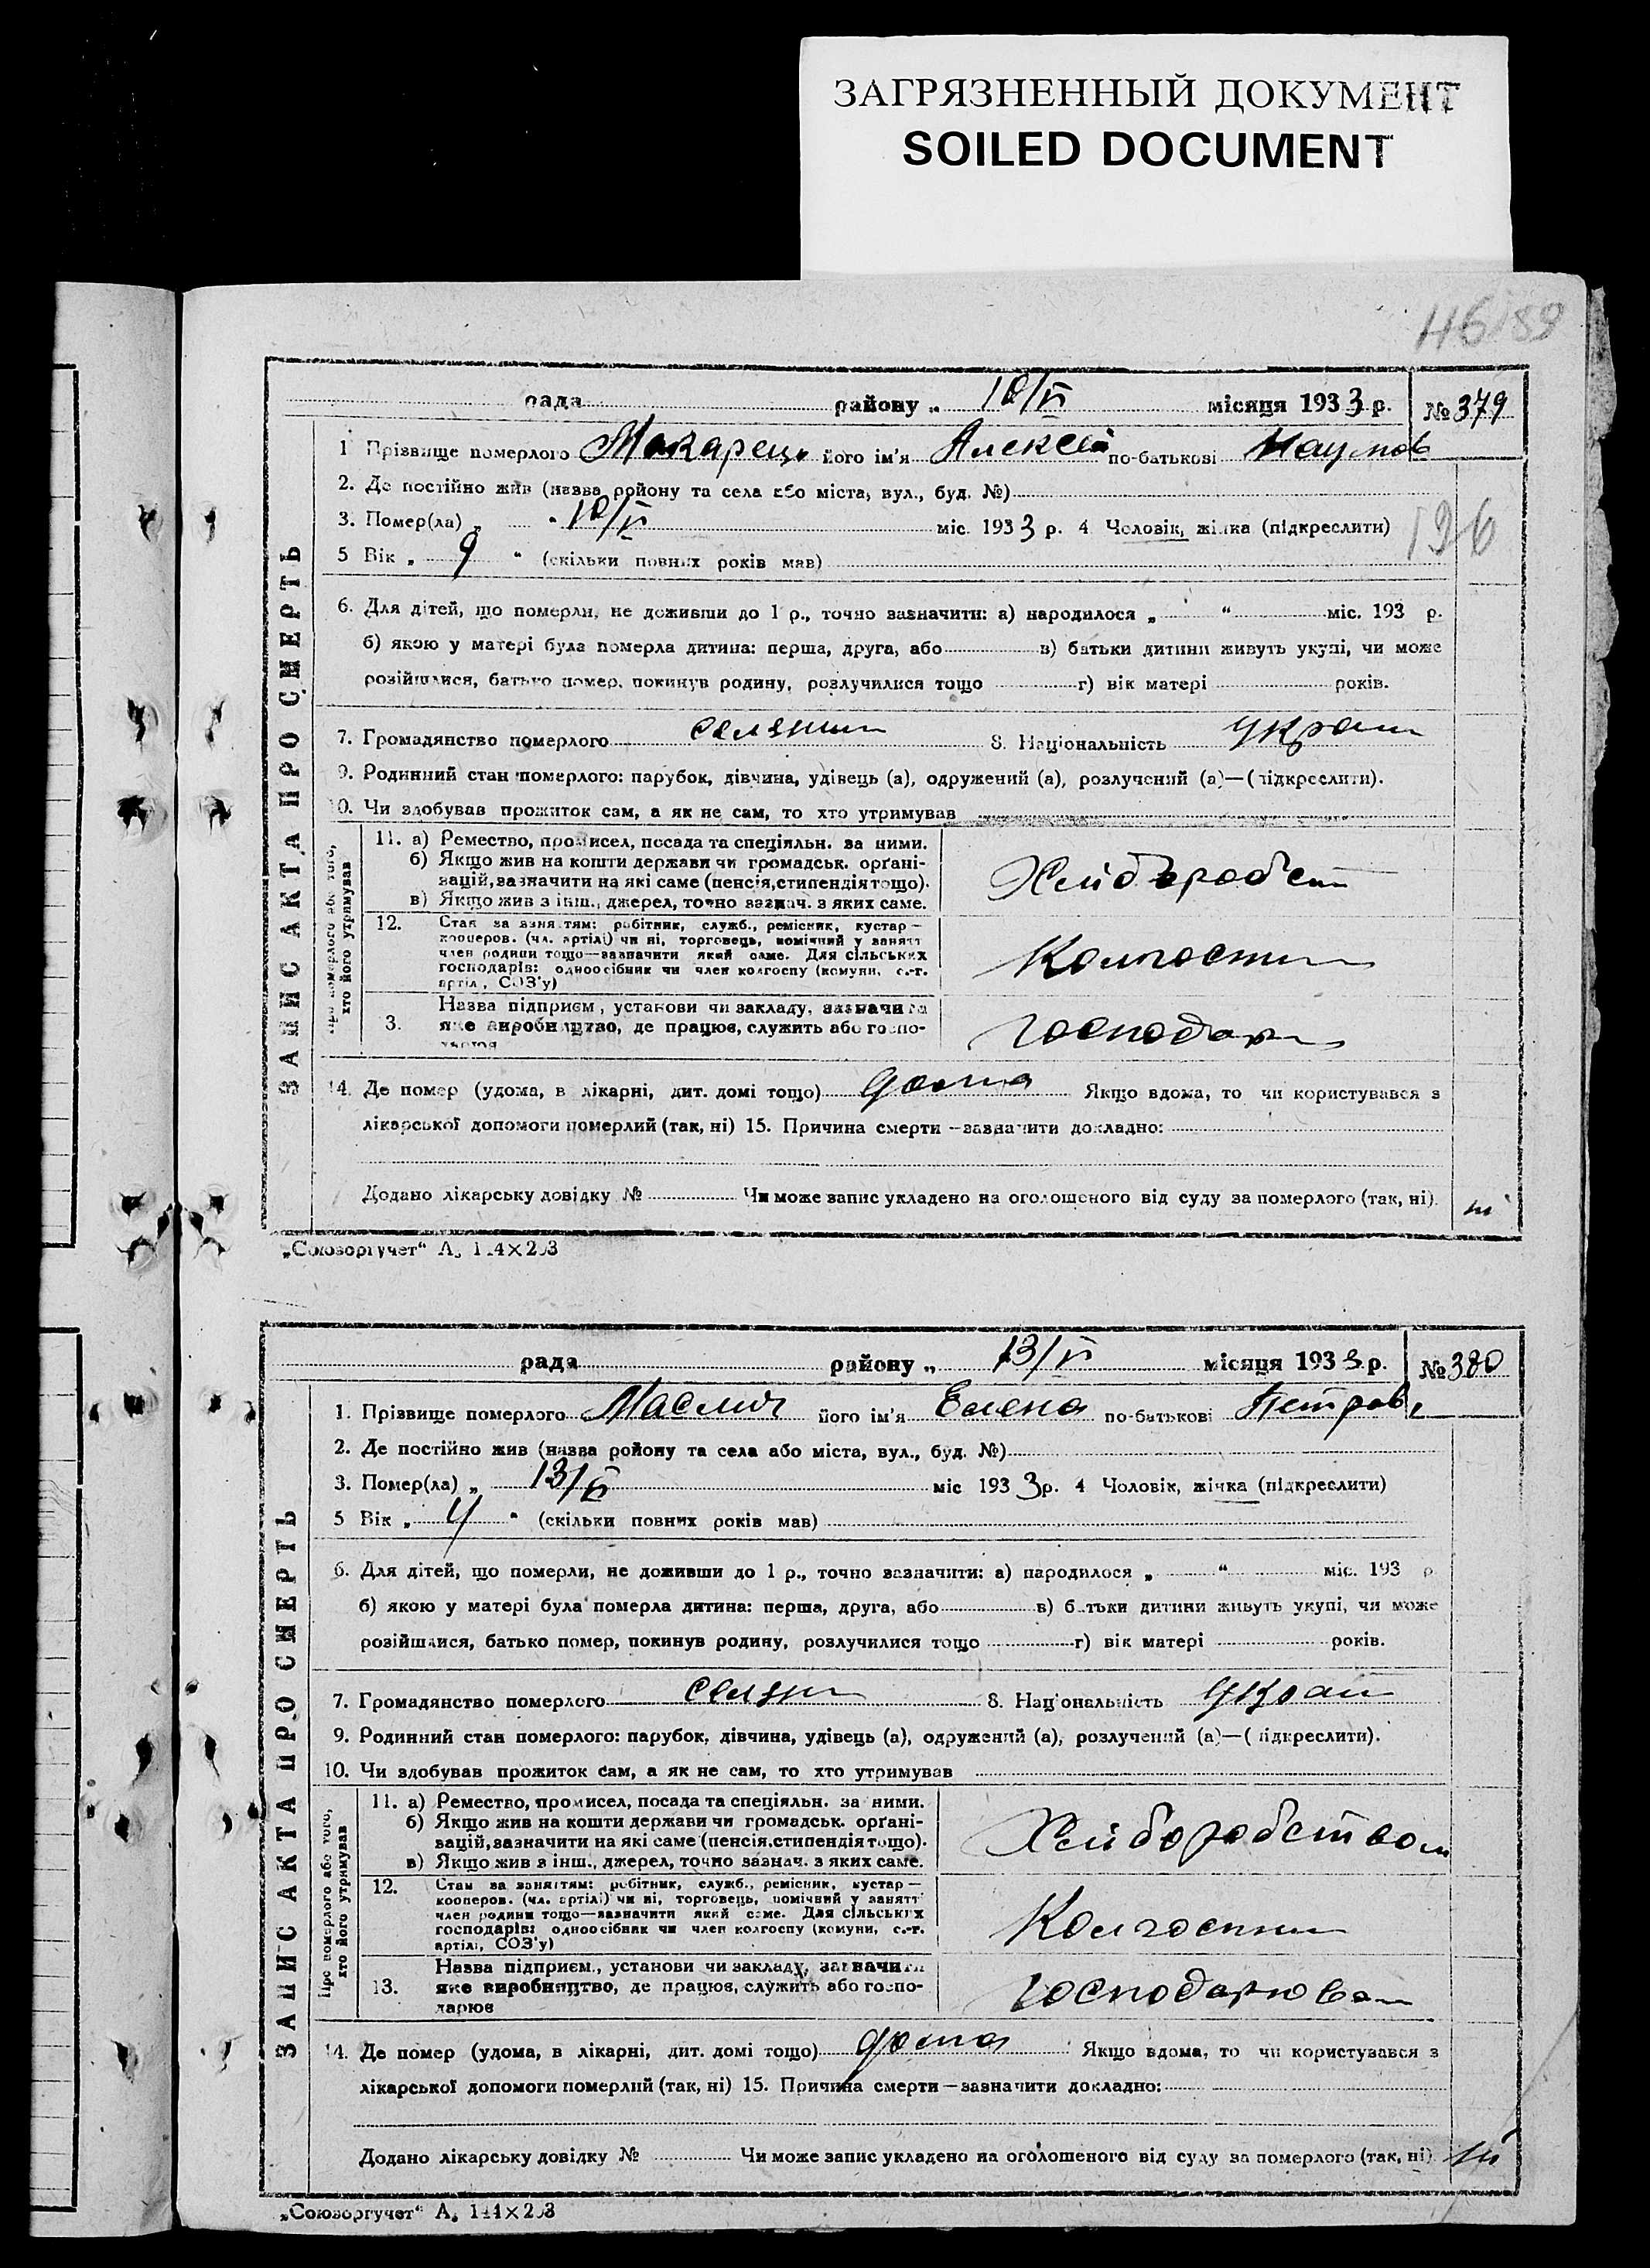 ЗАГРЯЗНЕННЫЙ ДОКУМЕНТ
SOILED DOCUMENT
ЗАПИС АКТА ПРО СМЕРТЬ
рада району „ 10/VI місяця 1933 р. № 379
1 Прізвище померлого Макарець його ім'я Алексей по-батькові Наумов
2. Де постійно жив (назва району та села або міста, вул., буд. №)
3. Помер(ла) „ 10/VI міс. 1933 р. 4 Чоловік, жінка (підкреслити)
136
5 Вік „ 9 “ (скільки повних років мав)
6. Для дітей, що померли, не доживши до 1 р., точно зазначити: а) народилося „ “ міс. 193 р.
б) якою у матері була померла дитина: перша, друга, або в) батьки дитини живуть укупі, чи може
розійшлися, батько помер, покинув родину, розлучилися тощо г) вік матері років.
7. Громадянство померлого селянин 8. Національність украин
9. Родинний стан померлого: парубок, дівчина, удівець (а), одружений (а), розлучений (а)—(підкреслити).
10. Чи здобував прожиток сам, а як не сам, то хто утримував
Про померлого або того,
хто його утримував
11. а) Ремество, промисел, посада та спеціяльн. за ними.
б) Якщо жив на кошти держави чи громадськ. орґані-
зацій, зазначити на які саме (пенсія, стипендія тощо).
в) Якщо жив з інш., джерел, точно зазнач. з яких саме.
12. Стан за заняттям: робітник, служб., ремісник, кустар—
кооперов. (чл. артілі) чи ні, торговець, помічний у занятт
член родини тощо—зазначити який саме. Для сільських
господарів: одноосібник чи член колгоспу (комуни, с.-г.
артілі, СОЗ'у)
Назва підприєм., установи чи закладу, зазначити
3. яке виробництво, де працює, служить або госпо-
14. Де помер (удома, в лікарні, дит. домі тощо) дома Якщо вдома, то чи користувався з
лікарської допомоги померлий (так, ні) 15. Причина смерти—зазначити докладно:
Додано лікарську довідку № Чи може запис укладено на оголошеного від суду за померлого (так, ні). ні
„Союзоргучет“
ЗАПИС АКТА ПРО СМЕРТЬ
рада району „ 13/VI місяця 1933 р. № 380
1. Прізвище померлого його ім'я Елена по-батькові Петров
2. Де постійно жив (назва району та села або міста, вул., буд. №)
3. Помер(ла) „ 13/VI міс 1933 р. 4 Чоловік, жінка (підкреслити)
5 Вік „ 4 “ (скільки повних років мав)
6. Для дітей, що померли, не доживши до 1 р., точно зазначити: а) народилося „ “ міс. 193 р
б) якою у матері була померла дитина: перша, друга, або в) батьки дитини живуть укупі, чи може
розійшлися, батько помер, покинув родину, розлучилися тощо г) вік матері років.
7. Громадянство померлого селян 8. Національність украин
9. Родинний стан померлого: парубок, дівчина, удівець (а), одружений (а), розлучений (а)—(підкреслити).
10. Чи здобував прожиток сам, а як не сам, то хто утримував
Про померлого або того,
хто його утримував
11. а) Ремество, промисел, посада та спеціяльн. за ними.
б) Якщо жив на кошти держави чи громадськ. орґані-
зацій, зазначити на які саме (пенсія, стипендія тощо).
в) Якщо жив з інш., джерел, точно зазнач. з яких саме.
Хлиборобством
12. Стан за заняттям: робітник, служб., ремісник, кустар—
кооперов. (чл. артілі) чи ні, торговець, помічний у занятт
член родини тощо—зазначити який саме. Для сільських
господарів: одноосібник чи член колгоспу (комуни, с.-г.
артілі, СОЗ'у)
Колгоспник
Назва підприєм., установи чи закладу, зазначити
13. яке виробництво, де працює, служить або госпо-
дарює
Господарював
14. Де помер (удома, в лікарні, дит. домі тощо) дома Якщо вдома, то чи користувався з
лікарської допомоги померлий (так, ні) 15. Причина смерти—зазначити докладно:
Додано лікарську довідку № Чи може запис укладено на оголошеного від суду за померлого (так, ні) ні
„Союзоргучет“